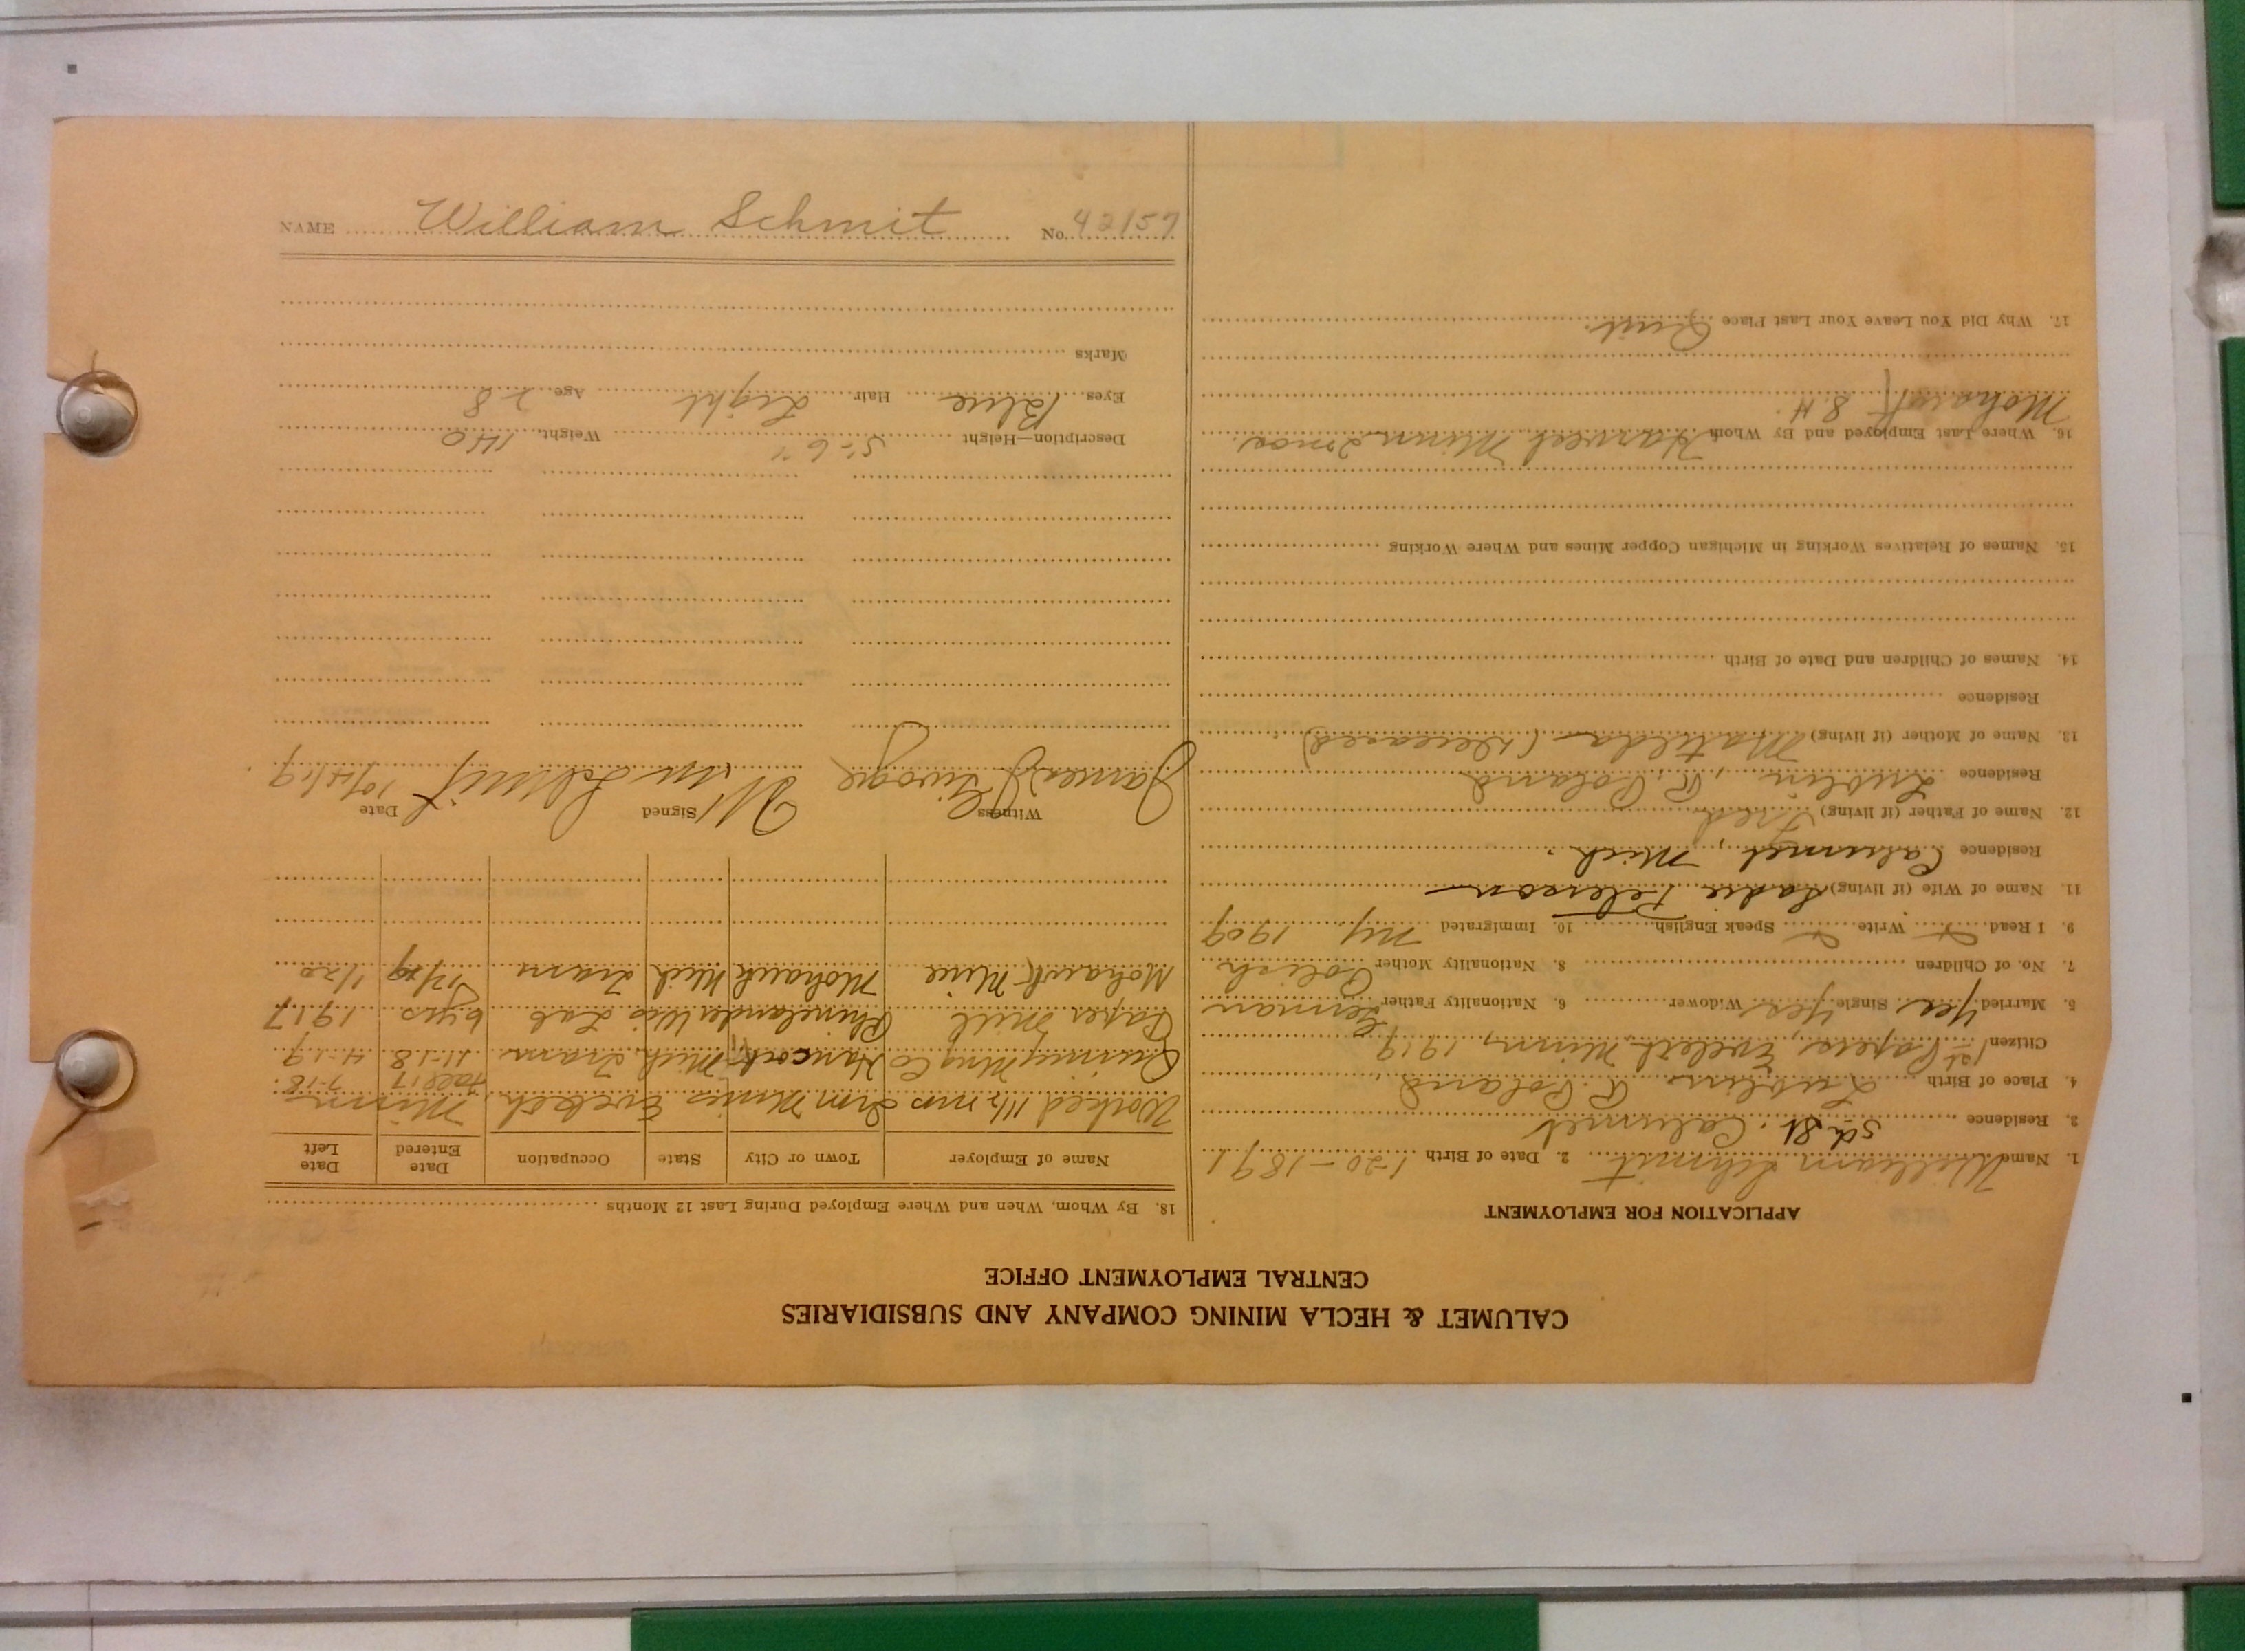 CALUMET & HECLA MINING COMPANY AND SUBSIDIARIES
CENTRAL EMPLOYMENT OFFICE
APPLICATION FOR EMPLOYMENT
1. Name William Schmit 2. Date of Birth 1-20-1891
3. Residence 5th St. Calumet
4. Place of Birth Lublin R. Poland
Citizen 1st Papers Eveleth Minn, 1919
5. Married Yes Single Yes Widower 6. Nationality Father German
7. No. of Children 8. Nationality Mother Polish
9. I Read Write Speak English 10. Immigrated NY. 1909
11. Name of Wife (if living) Sadie Peterson
Residence Calumet, Mich.
12. Name of Father (if living) Fred
Residence Lublin, R. Poland
13. Name of Mother (if living) Matilda (Deceased)
Residence
14. Names of Children and Date of Birth
15. Names of Relatives Working in Michigan Copper Mines and Where Working
16. Where Last Employed and By Whom Harvest Minn 2 mos.
Mohawk 8 H.
17. Why Did You Leave Your Last Place Quit.
18. By Whom, When and Where Employed During Last 12 Months
Name of Employer Town or City State Occupation Date Entered Date Left
Worked 1 1/2 mos Irn Mines Eveleth, Minn Fall 17 7-18.
Quincy Mng Co Hancock Mich. Tram 11-18 4-19
Paper Mill Rhinelander Wis Lab 6 yrs 1917
Mohawk Mine Mohawk Mich Tram 1/20
Witness Signed Date
James Wm Schmit 10/4/19
Description—Height 5'-6" Weight 140
Eyes Blue Hair Light Age 28
Marks
NAME William Schmit No. 42157